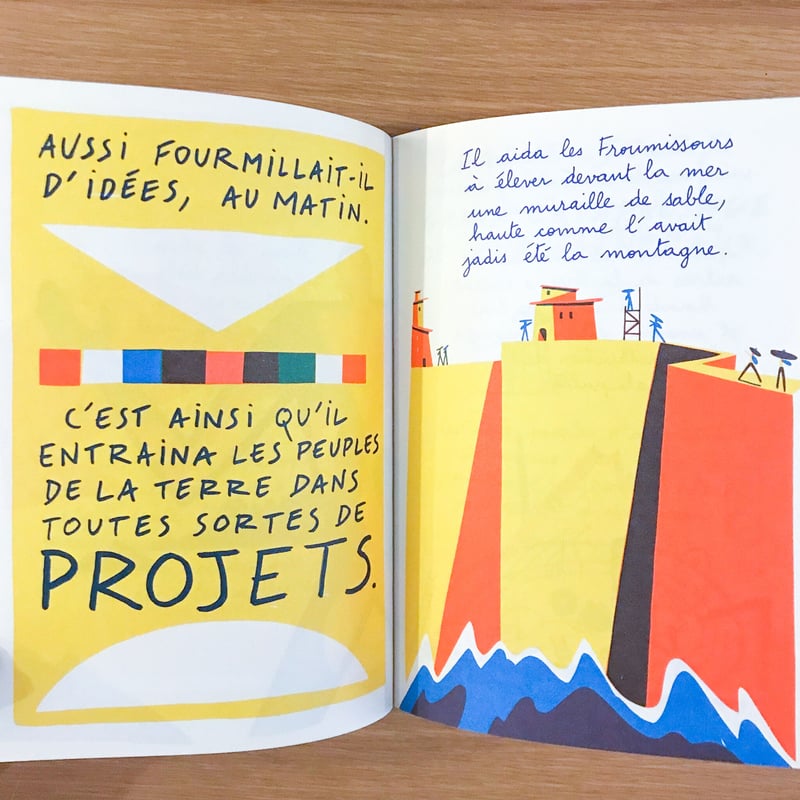 AUSSI FOURMILLAIT-IL
D'IDÉES, AU MATIN.
C'EST AINSI QU'IL
ENTRAINA LES PEUPLES
DE LA TERRE DANS
TOUTES SORTES DE
PROJETS.
Il aida les Froumissours
à élever devant la mer
une muraille de sable,
haute comme l'avait
jadis été la montagne.